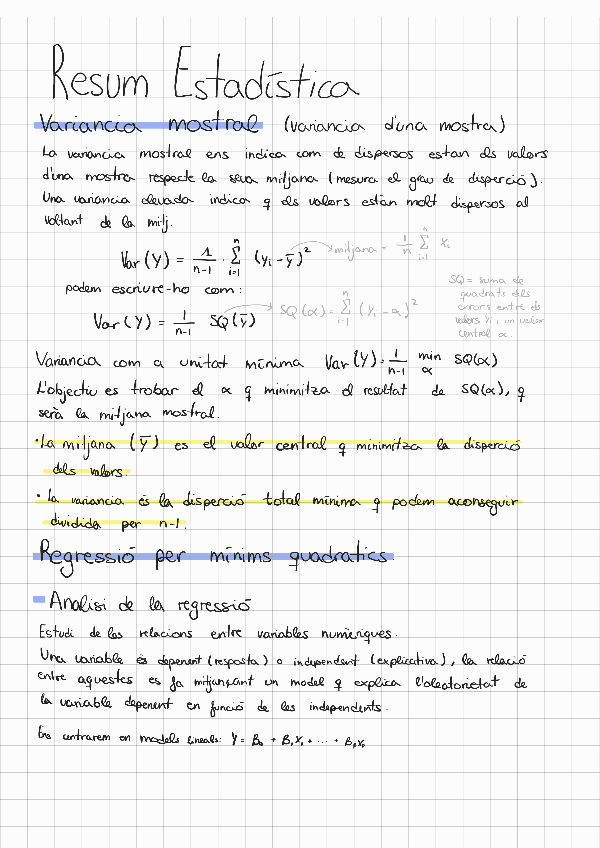 Resum Estadística
Variancia mostral (variancia d'una mostra)
La variancia mostral ens indica com de dispersos estan els valors
d'una mostra respecte la seva mitjana (mesura el grau de disperció).
Una variancia elevada indica q els valors estàn molt dispersos al
voltant de la mitj.
Var (Y) = 1/(n-1) · Σ_{i=1}^{n} (y_i - ȳ)² → mitjana = 1/n Σ_{i=1}^{n} x_i
podem escriure-ho com:
Var (Y) = 1/(n-1) SQ(ȳ) → SQ(α) = Σ_{i=1}^{n} (y_i - α)²
SQ = suma de
quadrats dels
errors entre els
valors Y_i i un valor
central α.
Variancia com a unitat mínima Var (Y) = 1/(n-1) min_α SQ(α)
L'objectiu es trobar el α q minimitza el resultat de SQ(α), q
serà la mitjana mostral.
· La mitjana (ȳ) es el valor central q minimitza la disperció
dels valors.
· La variancia és la disperció total mínima q podem aconseguir
dividida per n-1.
Regressió per mínims quadratics.
Analisi de la regressió
Estudi de les relacions entre variables numèriques.
Una variable és depenent (resposta) o independent (explicativa), la relació
entre aquestes es fa mitjançant un model q explica l'aleatorietat de
la variable depenent en funció de les independents.
Ens centrarem en models lineals: Y = B₀ + B₁X₁ + ... + BₚXₚ